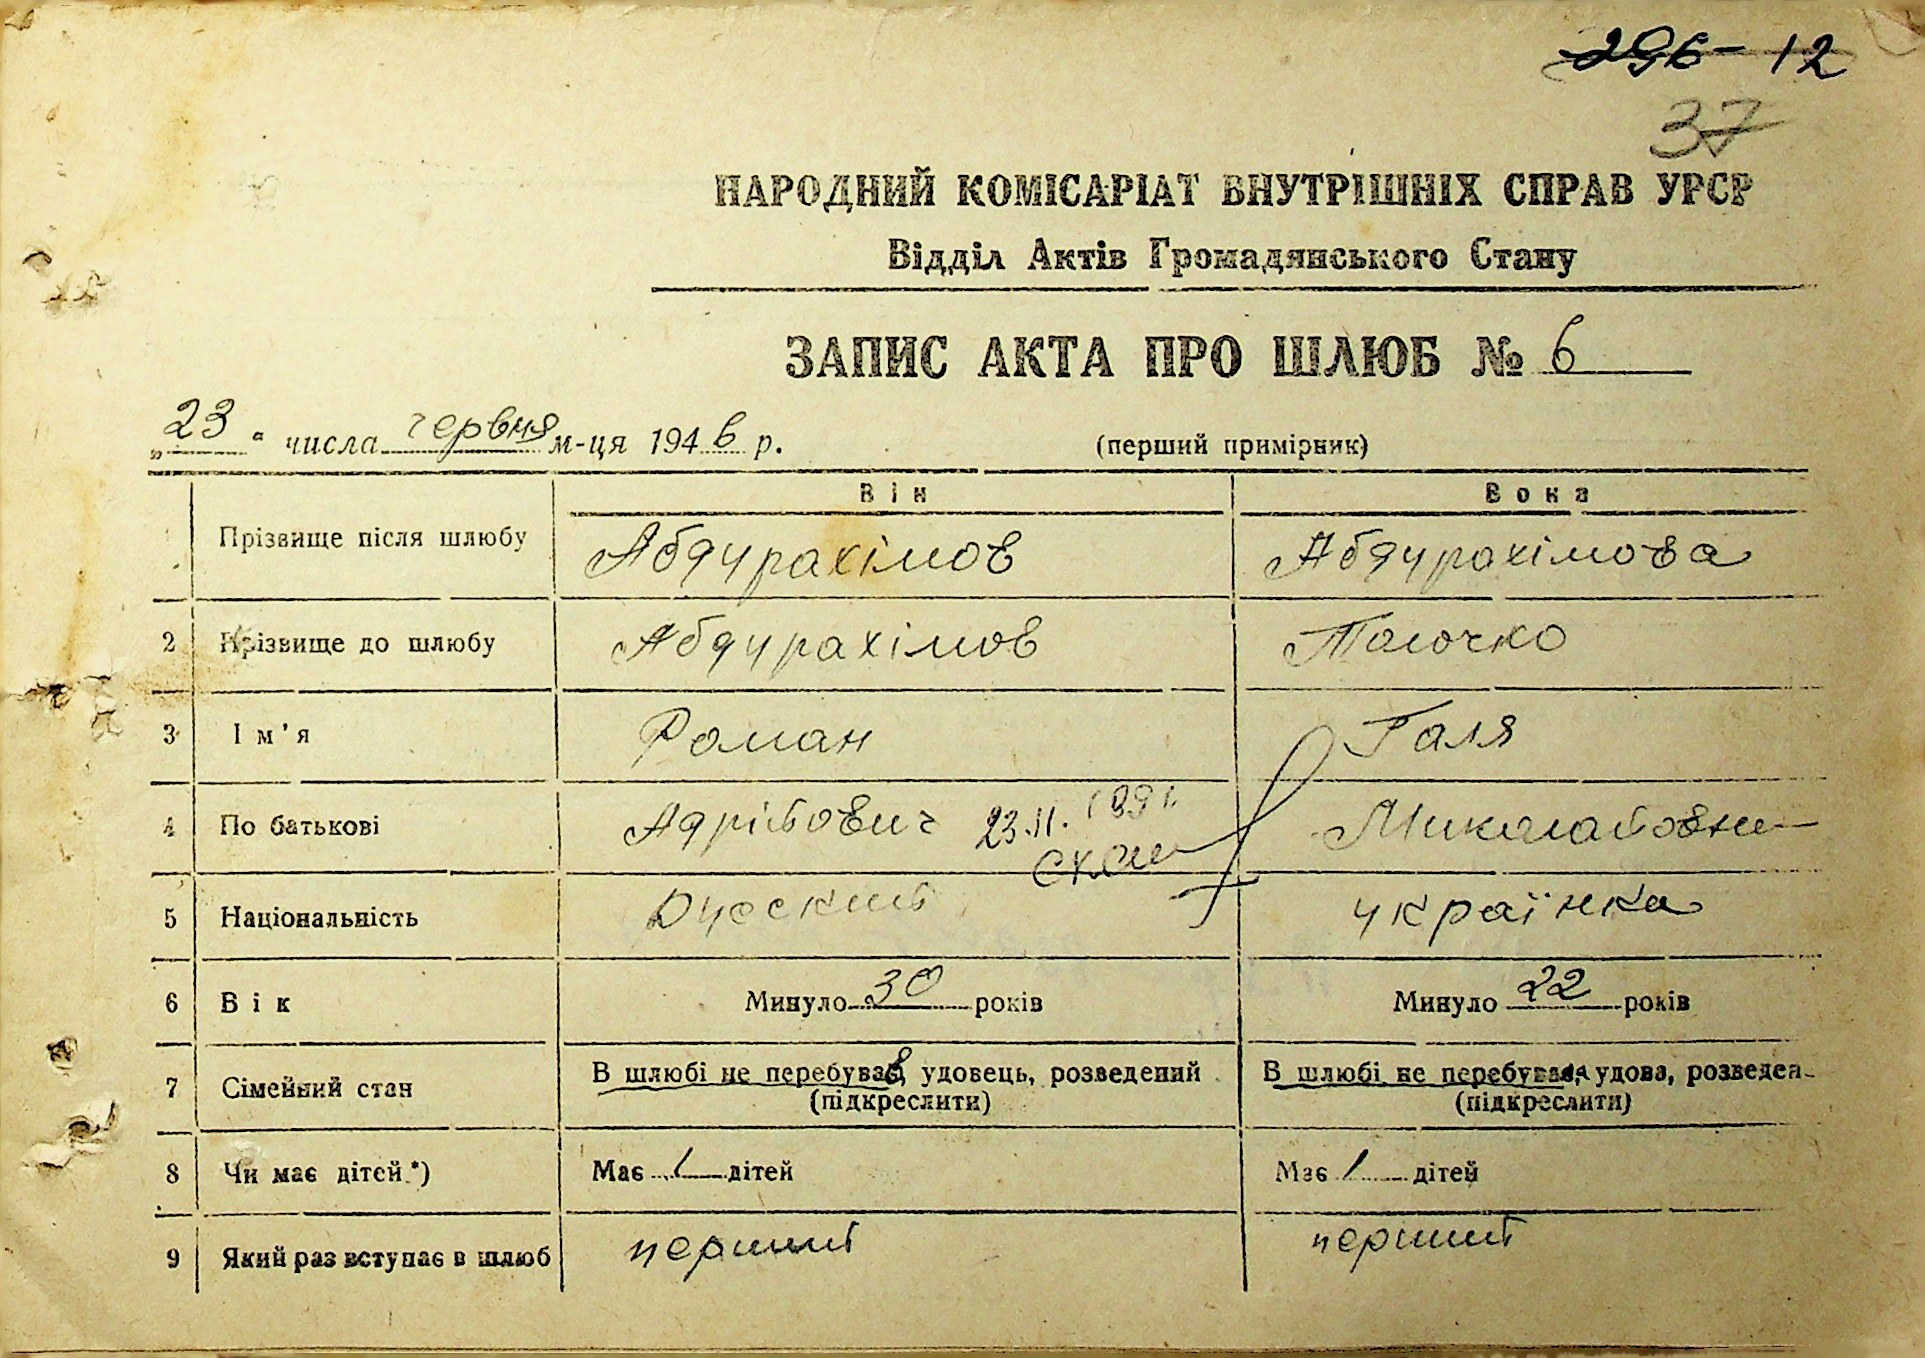 296 - 12
37
НАРОДНИЙ КОМІСАРІАТ ВНУТРІШНІХ СПРАВ УРСР
Відділ Актів Громадянського Стану
ЗАПИС АКТА ПРО ШЛЮБ № 6
„23“ числа червня м-ця 1946 р. (перший примірник)
Він Вона
Прізвище після шлюбу Абдурахімов Абдурахімова
2 Прізвище до шлюбу Абдурахімов Толочко
3 Ім'я Роман Галя
4 По батькові 23.11. Миколайовна
5 Національність Русский українка
6 Вік Минуло 30 років Минуло 22 років
7 Сімейний стан В шлюбі не перебував, удовець, розведений В шлюбі не перебувала, удова, розведен
(підкреслити) (підкреслити)
8 Чи має дітей *) Має 1 дітей Має 1 дітей
9 Який раз вступає в шлюб перший перший